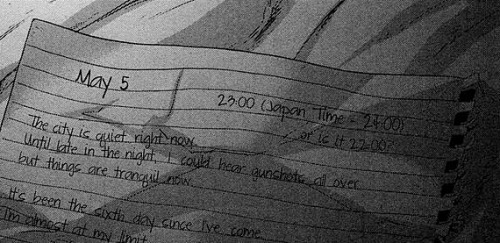 May 5
23:00 (Japan Time - 24:00)
or is it 22:00?
The city is quiet right now.
Until late in the night, I could hear gunshots all over
but things are tranquil now.
It's been the sixth day since I've come
I'm almost at my limit